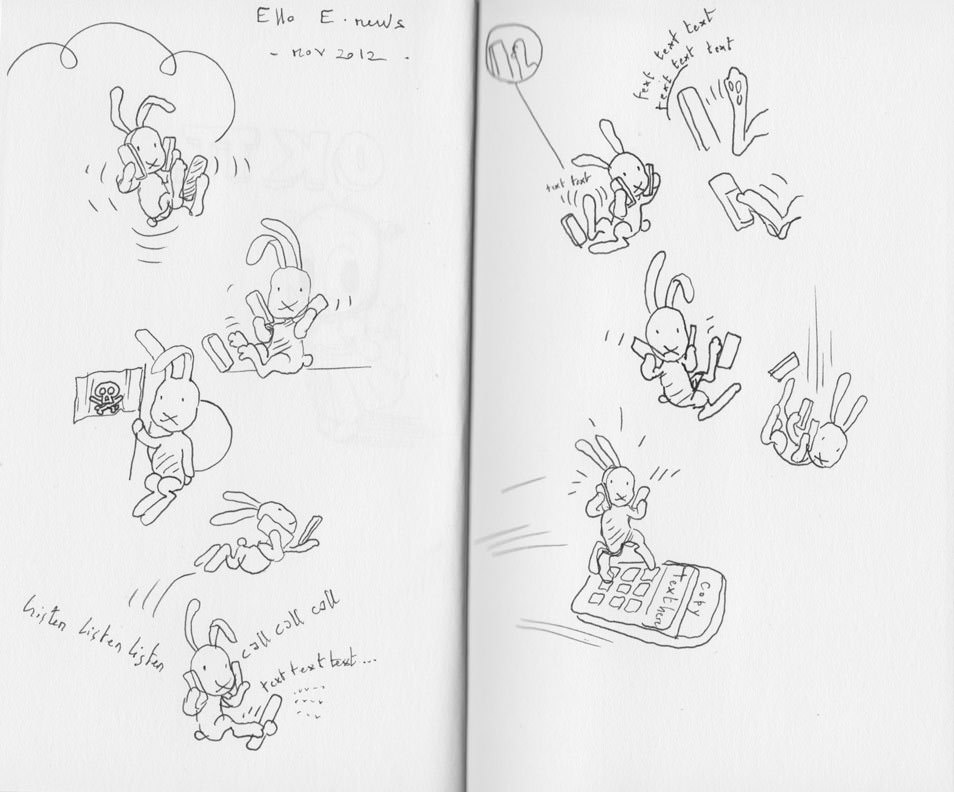 Ello E.news
- nov 2012 -
listen listen listen
call call call
text text text...
text text text
text text text
text text
text here
copy